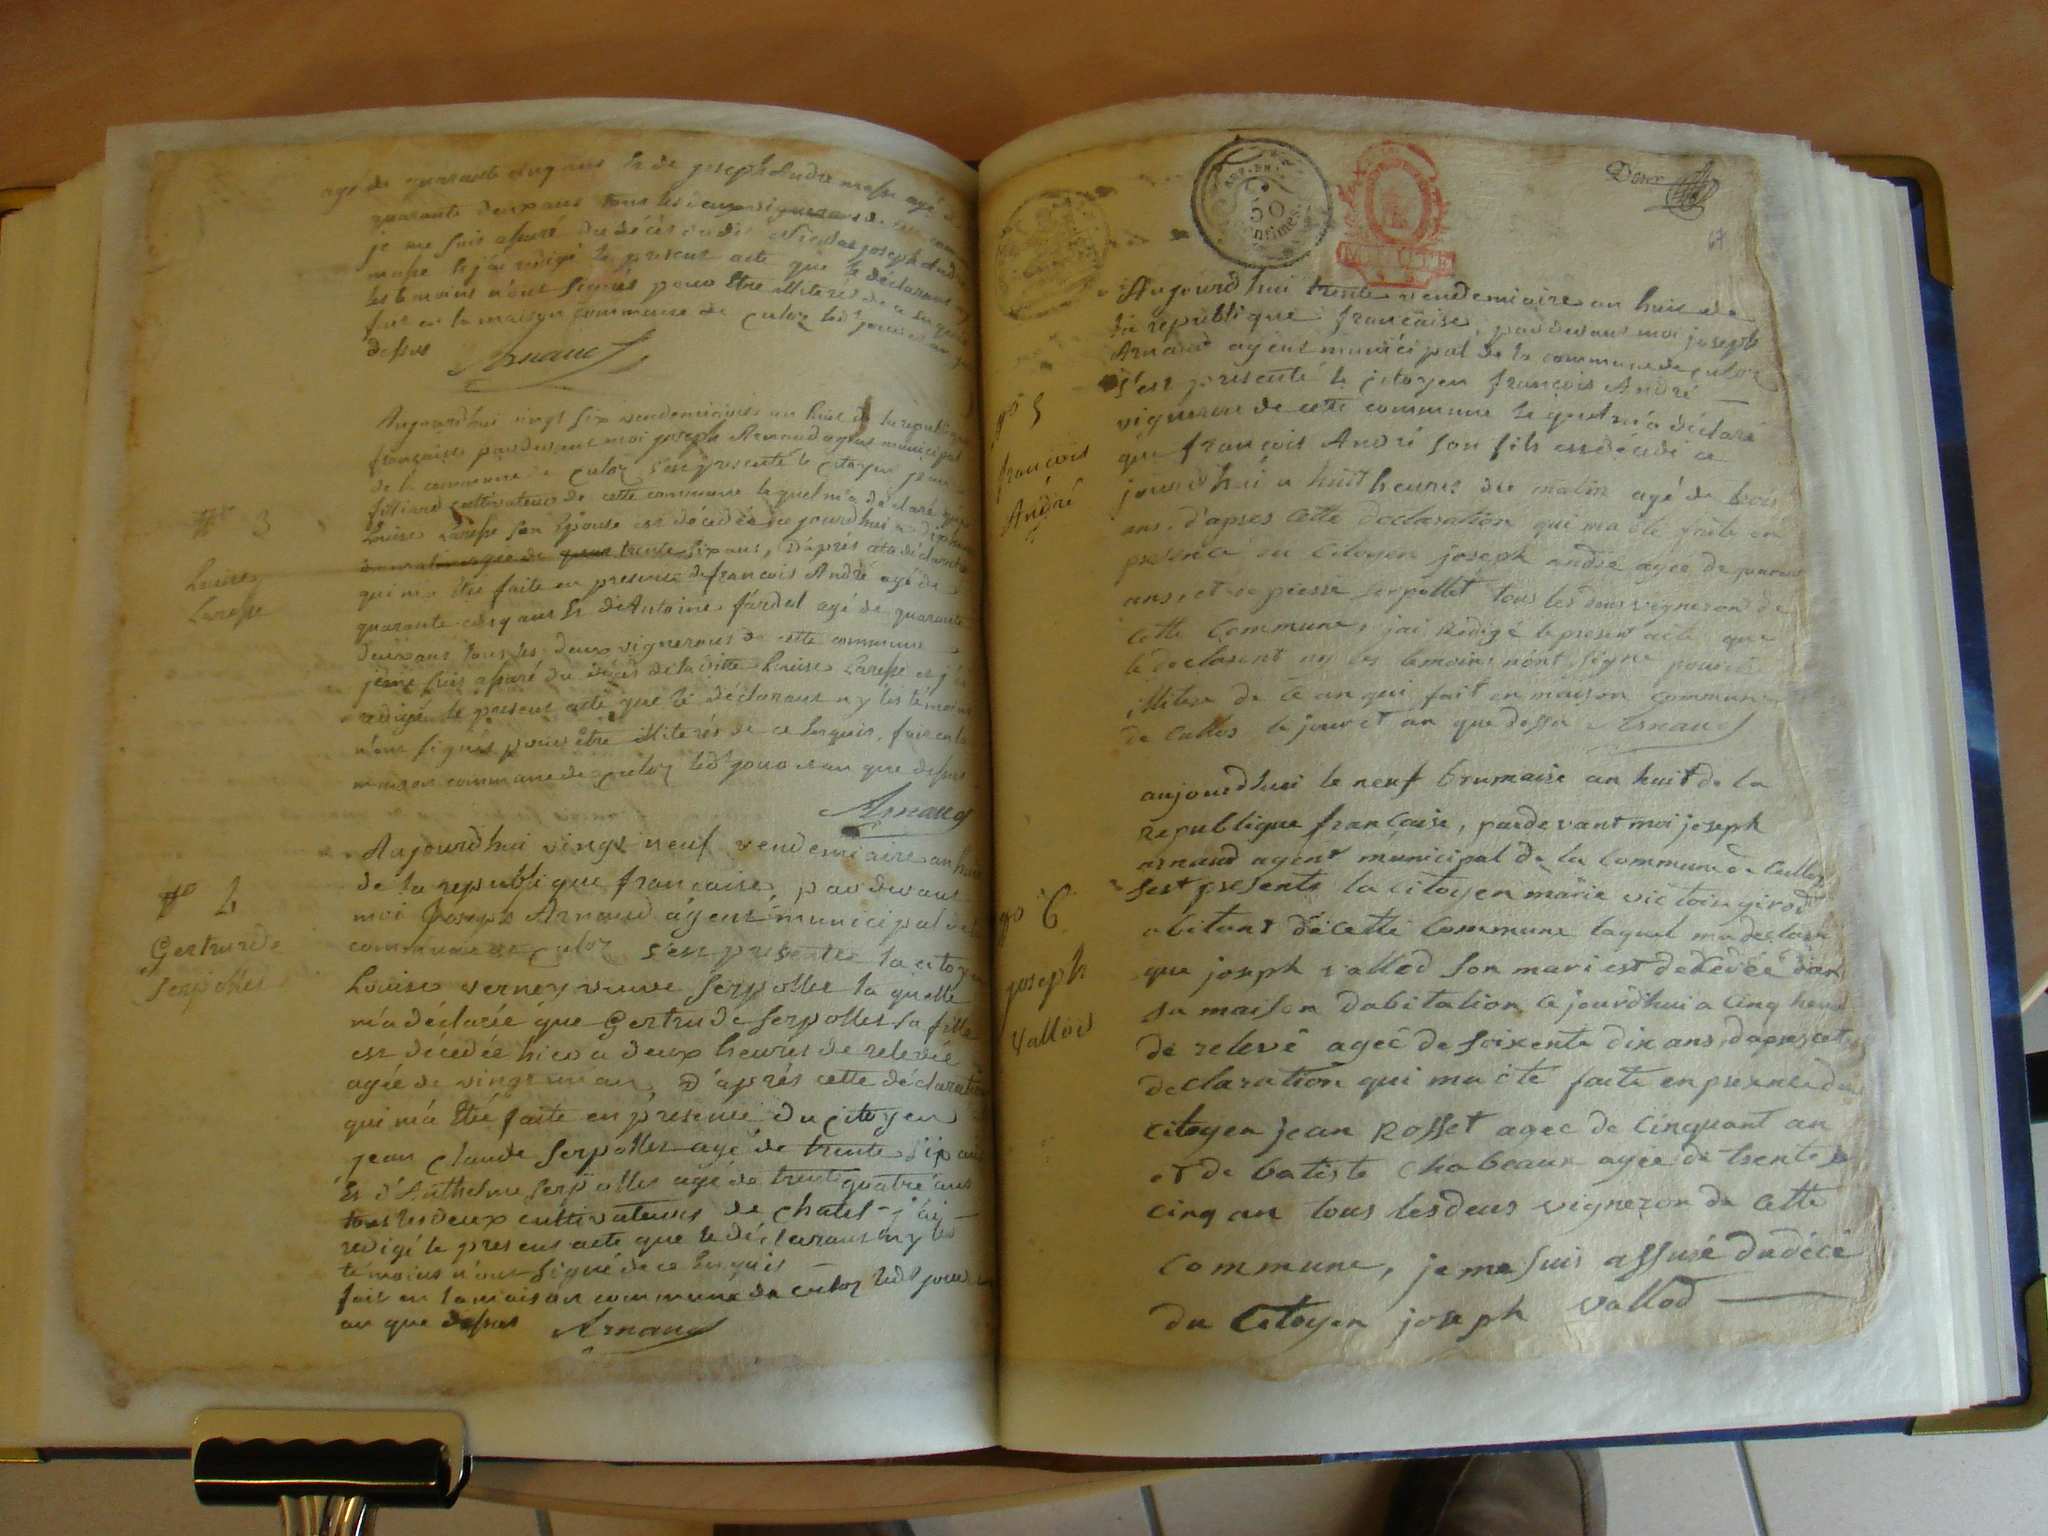 agé de quarante cinq ans & de joseph André masse agé de
quarante deux ans tous les deux vignerons de cette
je me suis assuré du décès dudit Nicolas joseph André
masse & j'ai rédigé le present acte que le déclarant
les temoins n'ont signés pour être illiterés de ce
fait en la maison commune de Culoz led^t jour et an que
dessus Arnaud
Aujourd'hui vingt six vendemiaire an huit de la republique
française pardevant moi joseph Arnaud agent municipal
de la commune de Culoz s'est presenté le citoyen
filliard cultivateur de cette commune lequel m'a déclaré que
Louise Laresse son Epouse est décédée du jourd'hui a dix heures
du matin agée de trente six ans, D'après cete déclaration
qui m'a été faite en presence de francois André agé de
quarante cinq ans & d'Antoine fardel agé de quarante
deux ans tous les deux vignerons de cette commune
je me suis assuré du décès de laditte Louise Laresse et j'ai
redigé le present acte que le déclarant n'y les témoins
n'ont signés pour être illiterés de ce Enquis, fait en la
maison commune de Culoz led^t jour et an que dessus
Arnaud
N° 3
Louise
Laresse
Aujourd'hui vingt neuf vendemiaire an huit
de la republique francaise, pardevant
moi Joseph Arnaud agent municipal de la
commune de Culoz s'est presentée la citoyenne
Louise verney veuve Serpollet la quelle
m'a déclarée que Gertrude Serpollet sa fille
est décedée hier a deux heures de relevée
agée de vingt un an, D'après cette déclaration
qui m'a été faite en presence du citoyen
jean claude Serpollet agé de trente six ans
& d'Anthelme Serpollet agé de trente quatre ans
tous les deux cultivateurs de chatel - j'ai
redigé le present acte que le déclarant n'y les
témoins n'ont signé de ce Enquis
fait en la maison commune de Culoz led^t jour et
an que dessus Arnaud
N° 4
Gertrude
Serpollet
67
Aujourd'hui trente vendemiaire an huit de
la republique française, pardevant moi joseph
Arnaud agent municipal de la commune de Culoz
s'est presenté le citoyen françois André
vigneron de cette commune le quel m'a déclaré
que françois André son fils est décédé ce
jourd'hui a huit heures du matin agé de trois
ans. d'apses cette declaration qui ma ete faite en
presence du citoyen joseph andre agée de quarant
ans et de piesse serpollet tous les deus vigneron de
cette commune, jai Redigé le present acte que
le declarent ny les temoins n'ont signe pour etre
illitere de ce an qui fait en maison commune
de Culloz le jour et an que dessu Arnaud
N° 5
françois
André
aujourdhui le neuf brumaise an huit de la
republique francaise, pardevant moi joseph
arnaud agent municipal de la commune de Culloz
sest presente la citoyen marie victoin girod
abitant de cette commune laquel ma declare
que joseph vallod son mari est decedée dan
sa maison dabitation ce jourd'hui a cinq heure
de relevê ageé de soixente dix ans daprés cete
declaration qui ma été faite en presence du
citoyen jean Rosset ageé de cinquant an
et de batiste Chabeaux ageé de trente
cinq an tous les deus vigneron de cette
commune, je me suis assusé du décé
du Citoyen joseph vallod
N° 6
joseph
vallod